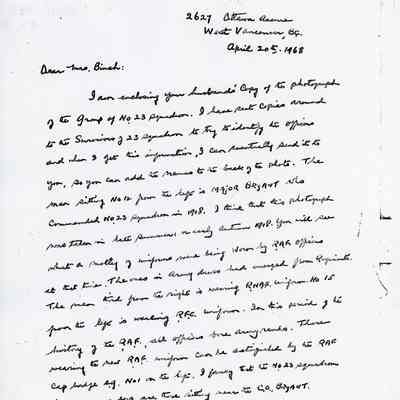 2627 Ottawa Avenue
West Vancouver, BC.
April 20 1968
Dear Mrs. Birch:
I am enclosing your husband's Copy of the photograph
of the Group of No 23 squadron. I have sent Copies around
to the Survivors of 23 squadron to try to identify the officers
and when I get this information, I can eventually send it to
you, so you can add the names to the back of the photo. The
man sitting No 12 from the left is Major BRYANT who
Commanded No 23 squadron in 1918. I think that this photograph
was taken in late Summer or early autumn 1918. You will see
what a motley of uniforms were being worn by RAF officers
at that time. The ones in Army dress had merged from Regiments.
The man third from the right is wearing RNAS uniform. No 15
from the left is wearing RFC uniform. In this period of the
history of the RAF, all officers bore army ranks. Those
wearing the new RAF uniform can be distinguished by the RAF
Cap badge eg. No 1 on the left. I fancy that the No 23 squadron
are those sitting near the C.O. BRYANT.